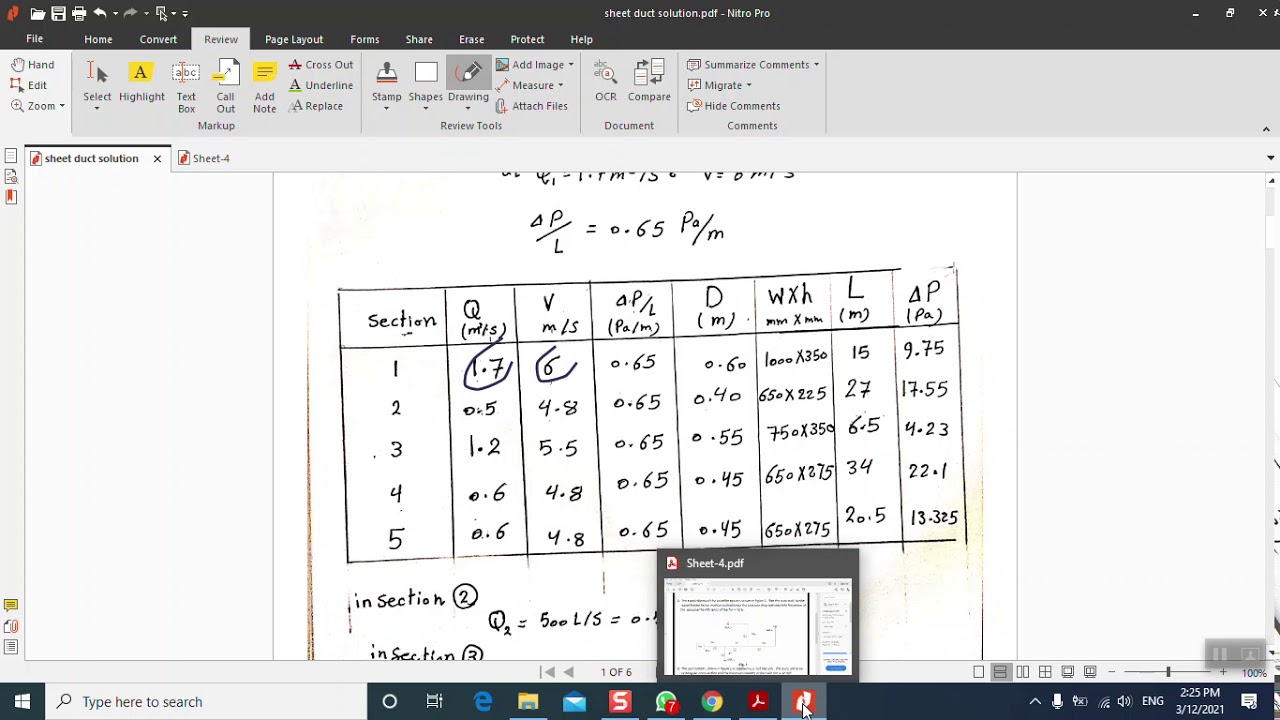 sheet duct solution.pdf - Nitro Pro
File Home Convert Review Page Layout Forms Share Erase Protect Help
Hand
Edit
Zoom
Select
Highlight
Text Box
Call Out
Add Note
Cross Out
Underline
Replace
Markup
Stamp
Shapes
Drawing
Add Image
Measure
Attach Files
Review Tools
OCR
Compare
Document
Summarize Comments
Migrate
Hide Comments
Comments
sheet duct solution
Sheet-4
ΔP/L = 0.65 Pa/m
Section Q (m³/s) V m/s ΔP/L (Pa/m) D (m) WXh mm X mm L (m) ΔP (Pa)
1 1.7 6 0.65 0.60 1000X350 15 9.75
2 0.5 4.8 0.65 0.40 650X225 27 17.55
3 1.2 5.5 0.65 0.55 750X350 6.5 4.23
4 0.6 4.8 0.65 0.45 650X275 34 22.1
5 0.6 4.8 0.65 0.45 650X275 20.5 13.325
in section 2
Q2 = 500 L/S = 0.5
in section 3
Sheet-4.pdf
1 OF 6
100%
Type here to search
7
ENG
2:25 PM
3/12/2021